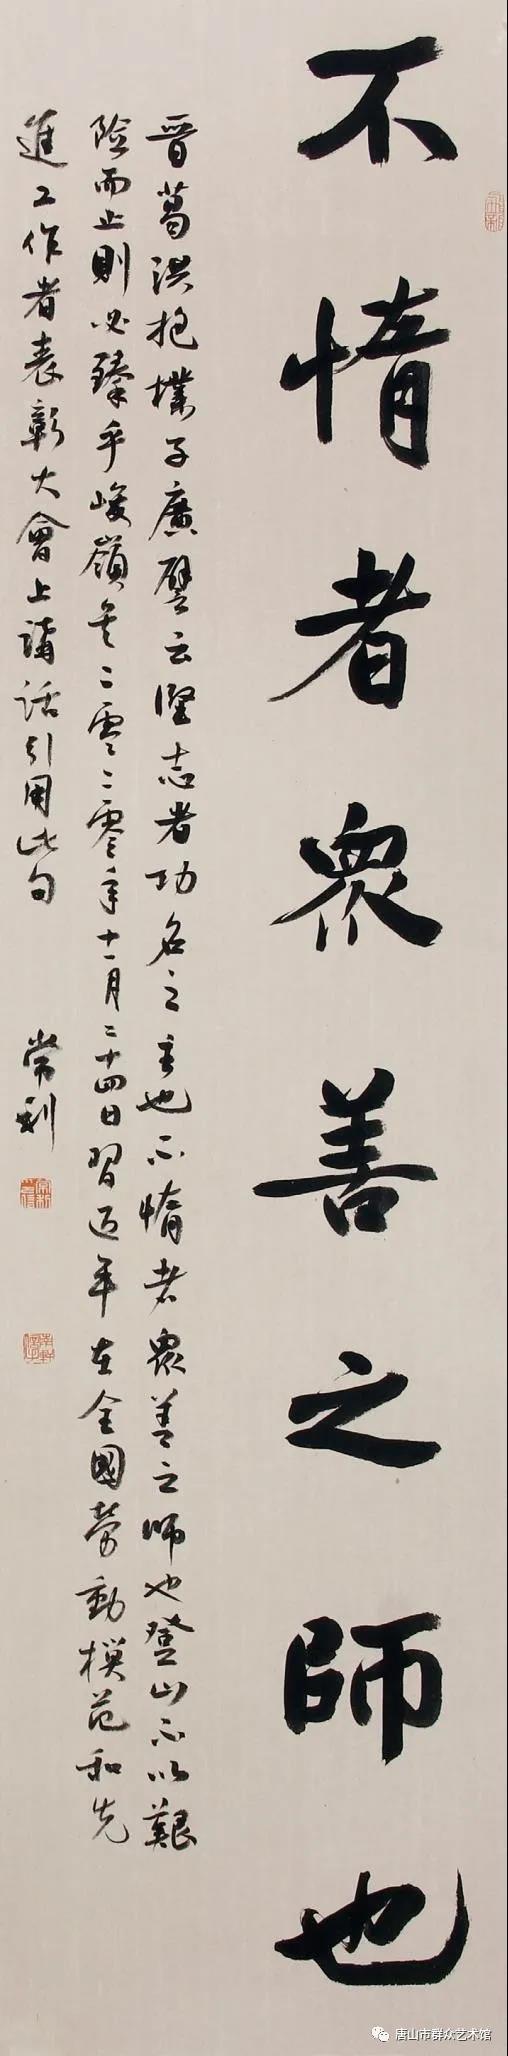 不惰者衆善之師也
晋葛洪抱樸子廣譬云堅志者功名之主也不惰者衆善之師也登山不以艱
險而止則必臻乎峻嶺矣二零二零年十一月二十四日習近平在全國勞動模范和先
進工作者表彰大會上講話引用此句
常利
唐山市群众艺术馆